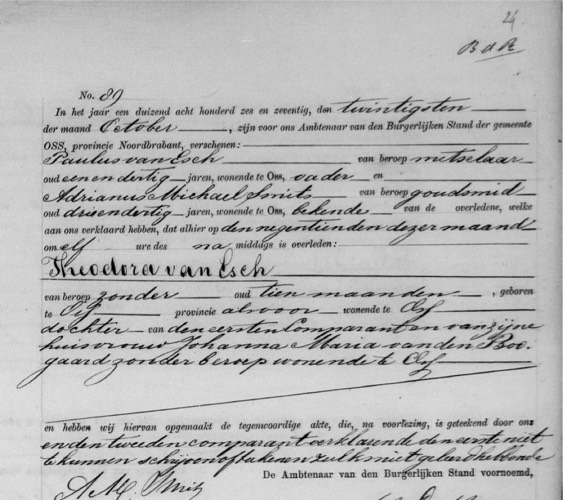 24
B d R
No. 89
In het jaar een duizend acht honderd zes en zeventig, den twintigsten
der maand October, zijn voor ons Ambtenaar van den Burgerlijken Stand der gemeente
OSS, provincie Noordbrabant, verschenen:
Paulus van Esch van beroep metselaar
oud een en dertig jaren, wonende te Oss, vader en
Adrianus Michael Smits van beroep goudsmid
oud drie en dertig jaren, wonende te Oss, bekende van de overledene, welke
aan ons verklaard hebben, dat alhier op den negentienden dezer maand
om elf ure des na middags is overleden:
Theodora van Esch
van beroep zonder oud tien maanden, geboren
te Oss provincie als voor wonende te Oss
dochter van den eersten Comparant en van zijne
huisvrouw Johanna Maria van den Boo-
gaard zonder beroep wonende te Oss
en hebben wij hiervan opgemaakt de tegenwoordige akte, die, na voorlezing, is geteekend door ons
en den tweeden comparant verklarende den eerste niet
te kunnen schrijven of teekenen zulks niet geleerd hebbende
De Ambtenaar van den Burgerlijken Stand voornoemd,
A M Smits